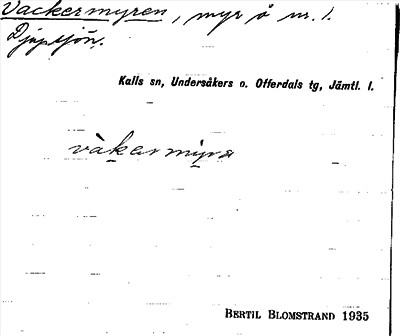 Vackermyren, myr å nr. 1.
Djupsjön.
Kalls sn, Undersåkers o. Offerdals tg, Jämtl. l.
vàkermyra
BERTIL BLOMSTRAND 1935